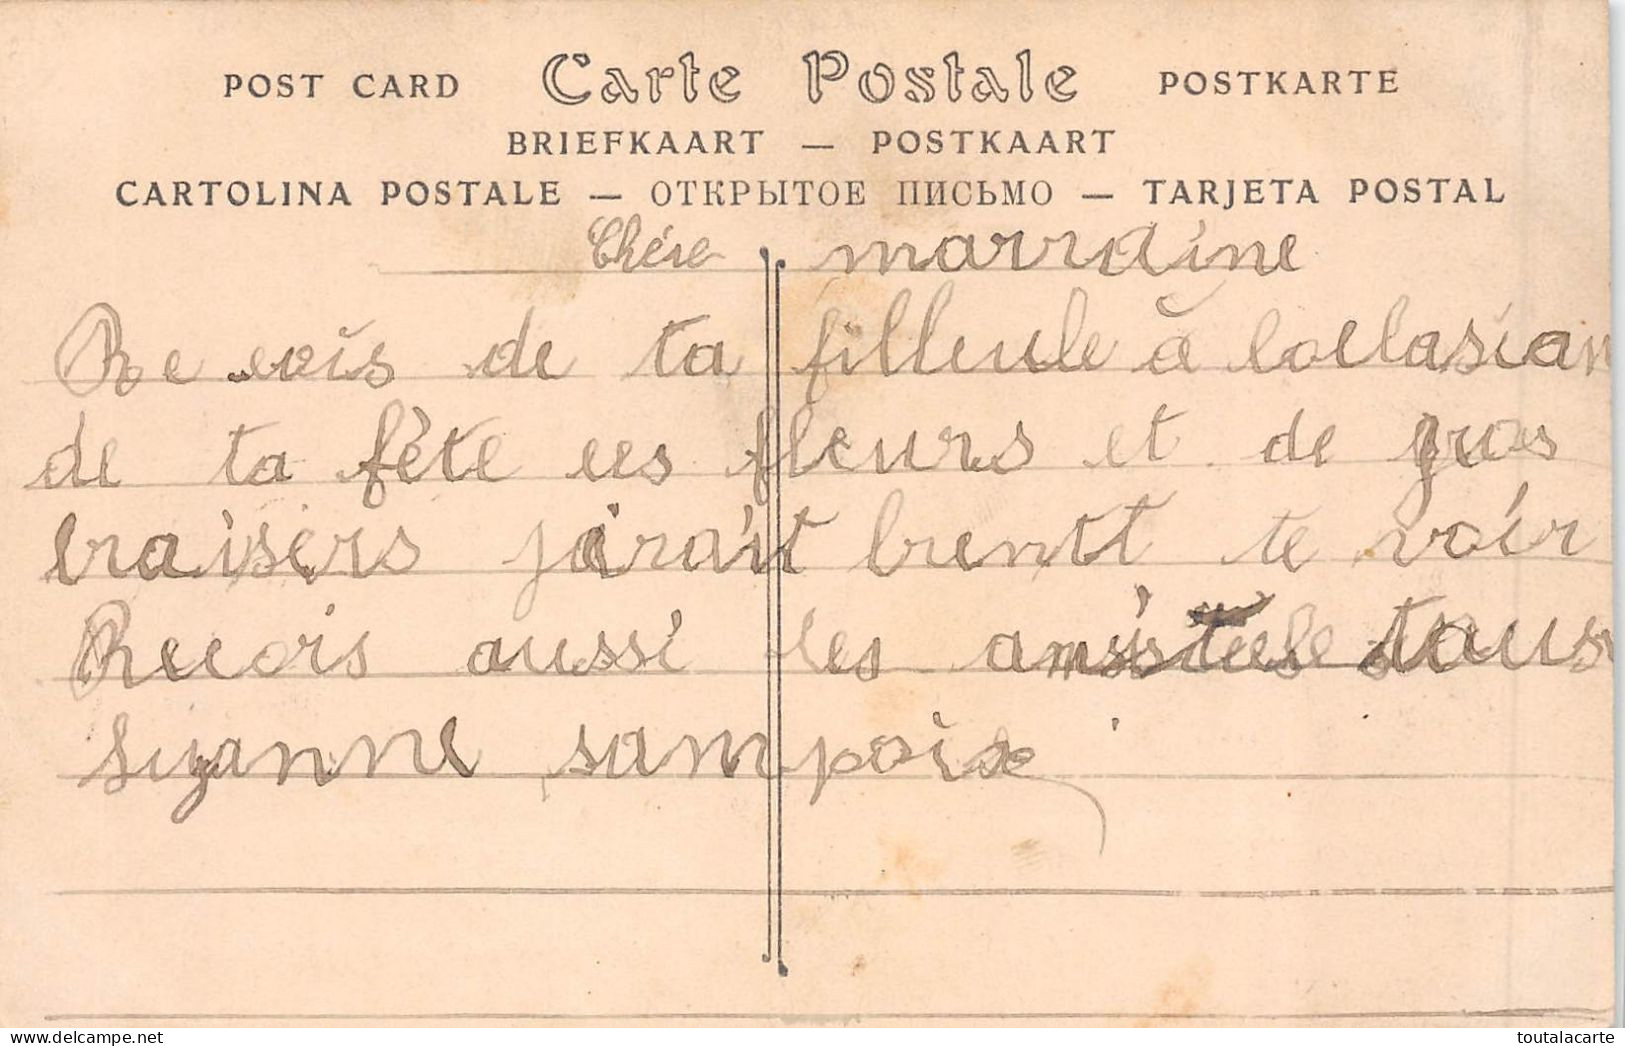 POST CARD Carte Postale POSTKARTE
BRIEFKAART — POSTKAART
CARTOLINA POSTALE — ОТКРЫТОЕ ПИСЬМО — TARJETA POSTAL
Chére marraine
Re cois de ta filleule à loclasian
de ta fête ces fleurs et de gros
braisers jairait brentt te voir
Recois aussi les amisties de tous
suzanne sampoix
delcampe.net
toutalacarte